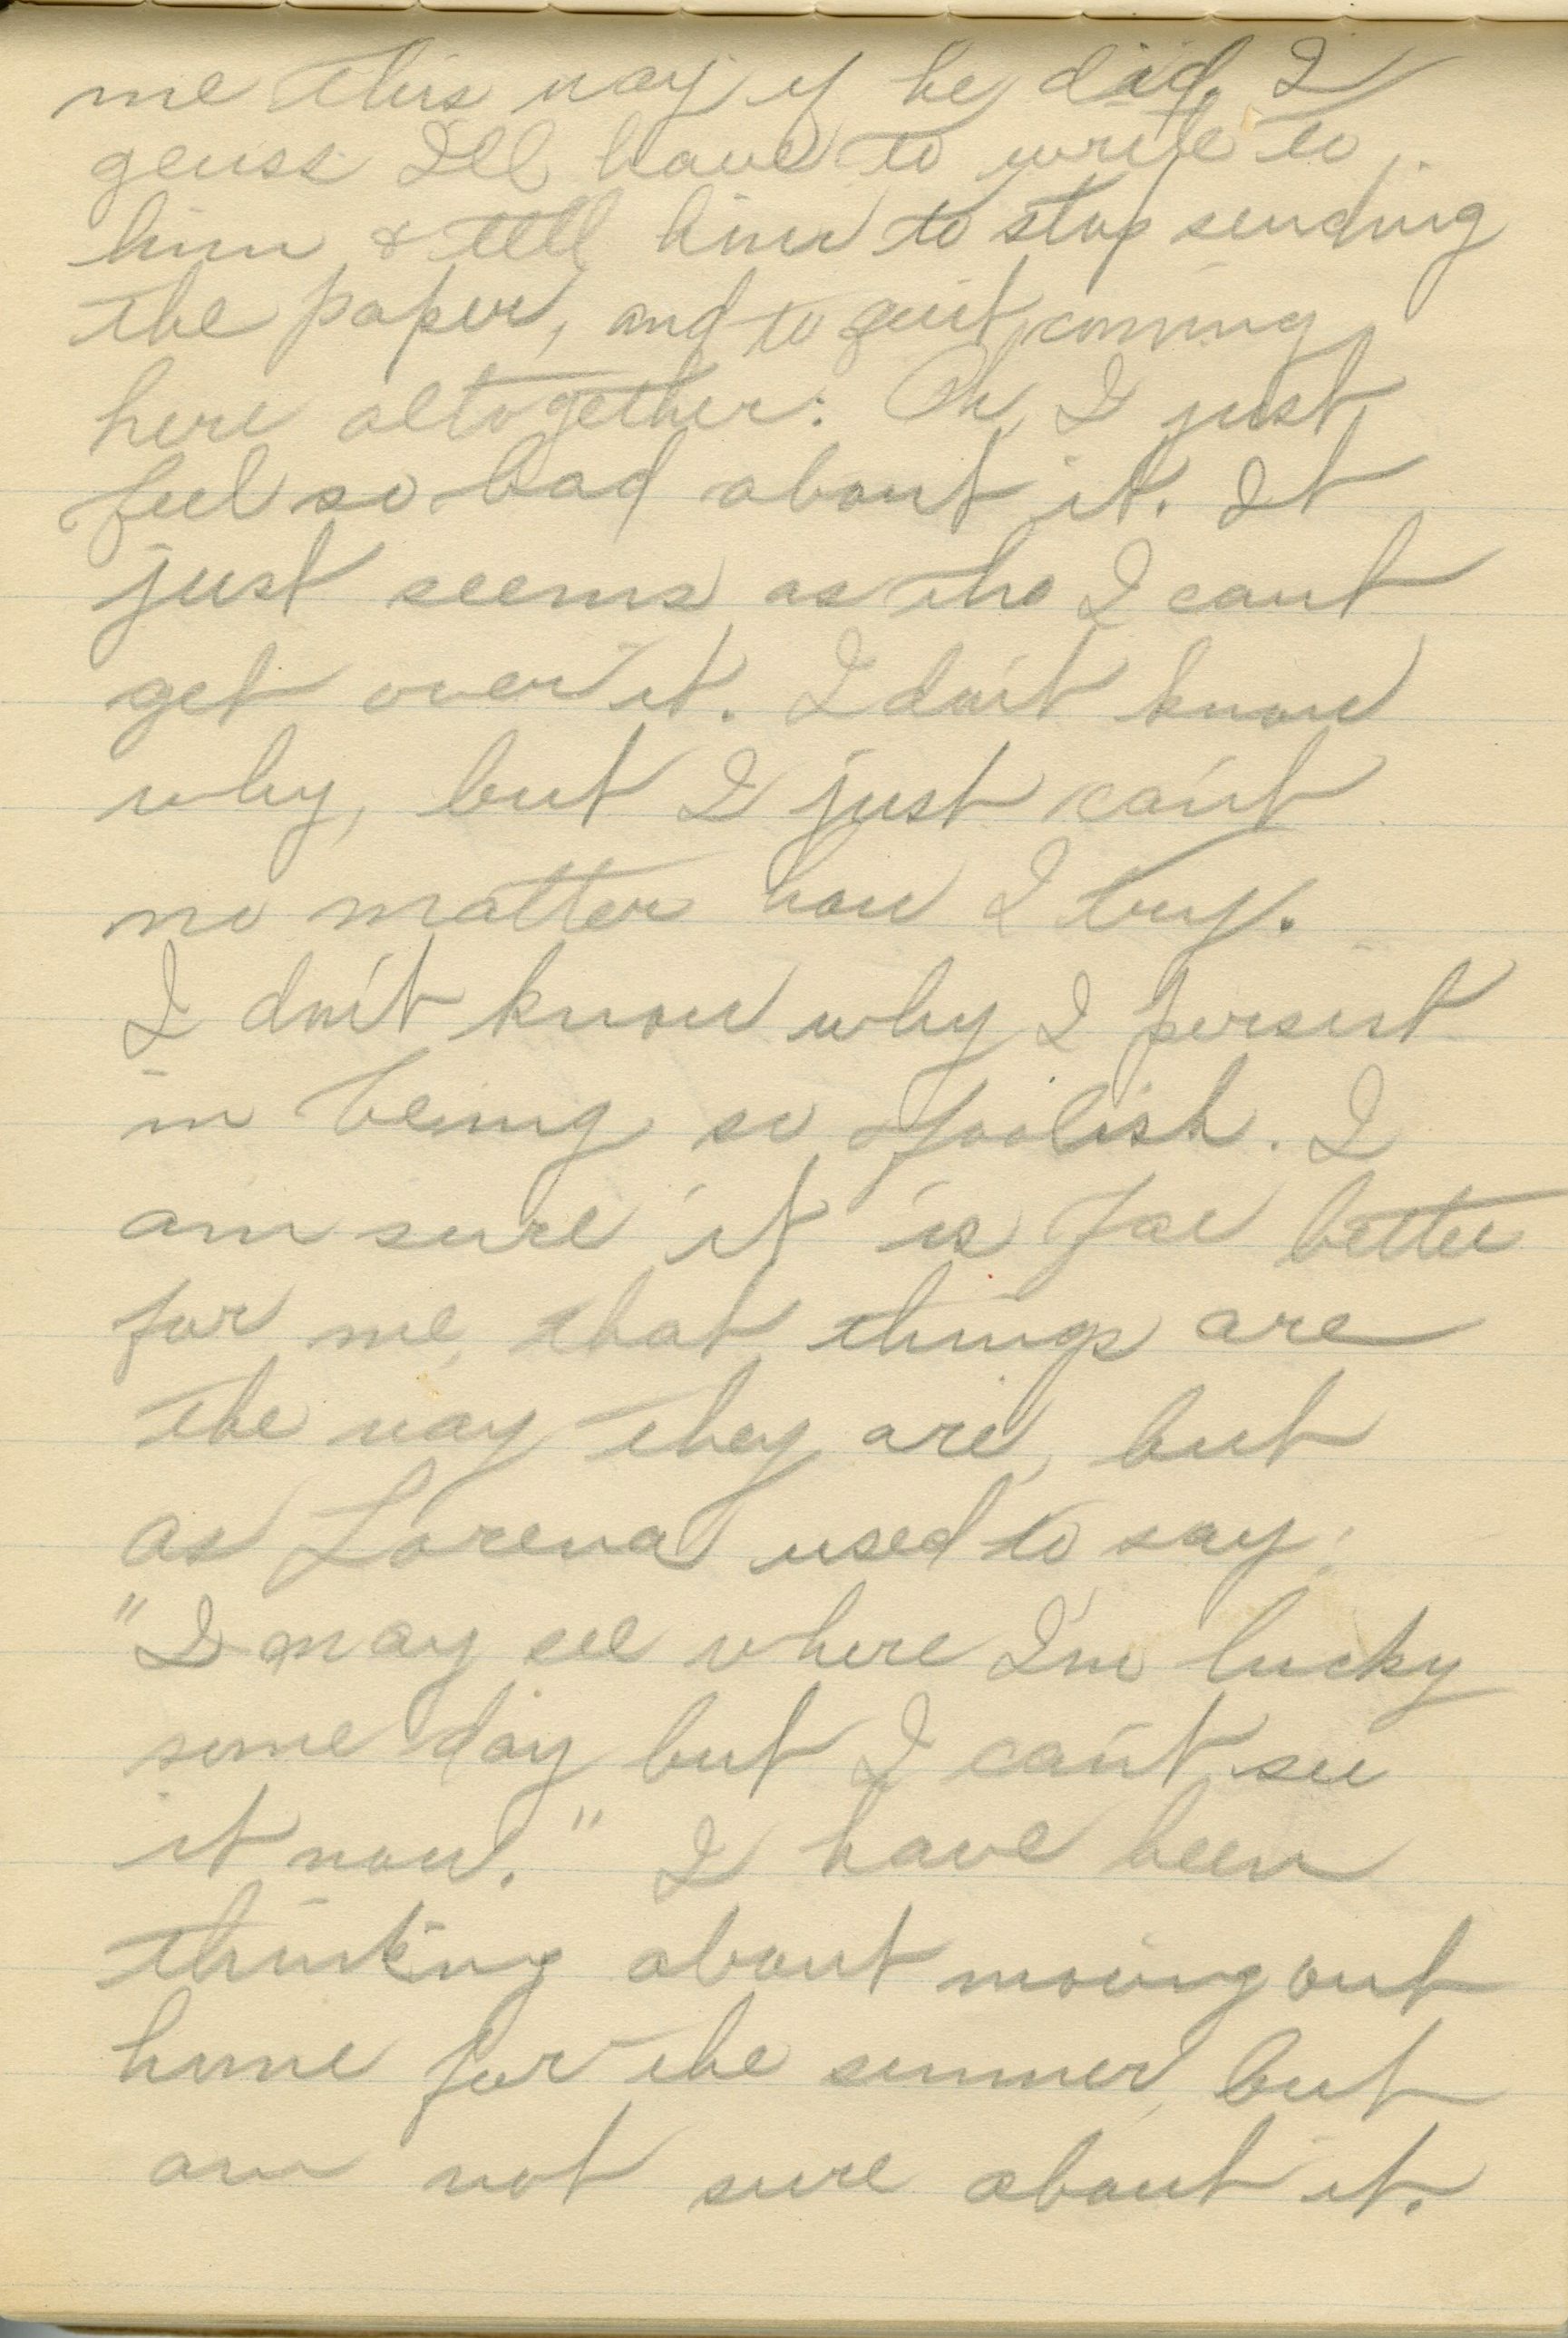 me this way if he did. I
geuss I'll have to write to
him & tell him to stop sending
the paper, and to quit coming
here altogether: Oh, I just
feel so bad about it. It
just seems as tho I cant
get over it. I don't know
why, but I just can't
no matter how I try.
I don't know why I persist
in being so foolish. I
am sure it is far better
for me, that things are
the way they are, but
as Lorena used to say:
"I may see where I'm lucky
some day but I can't see
it now." I have been
thinking about moving out
home for the summer, but
am not sure about it.